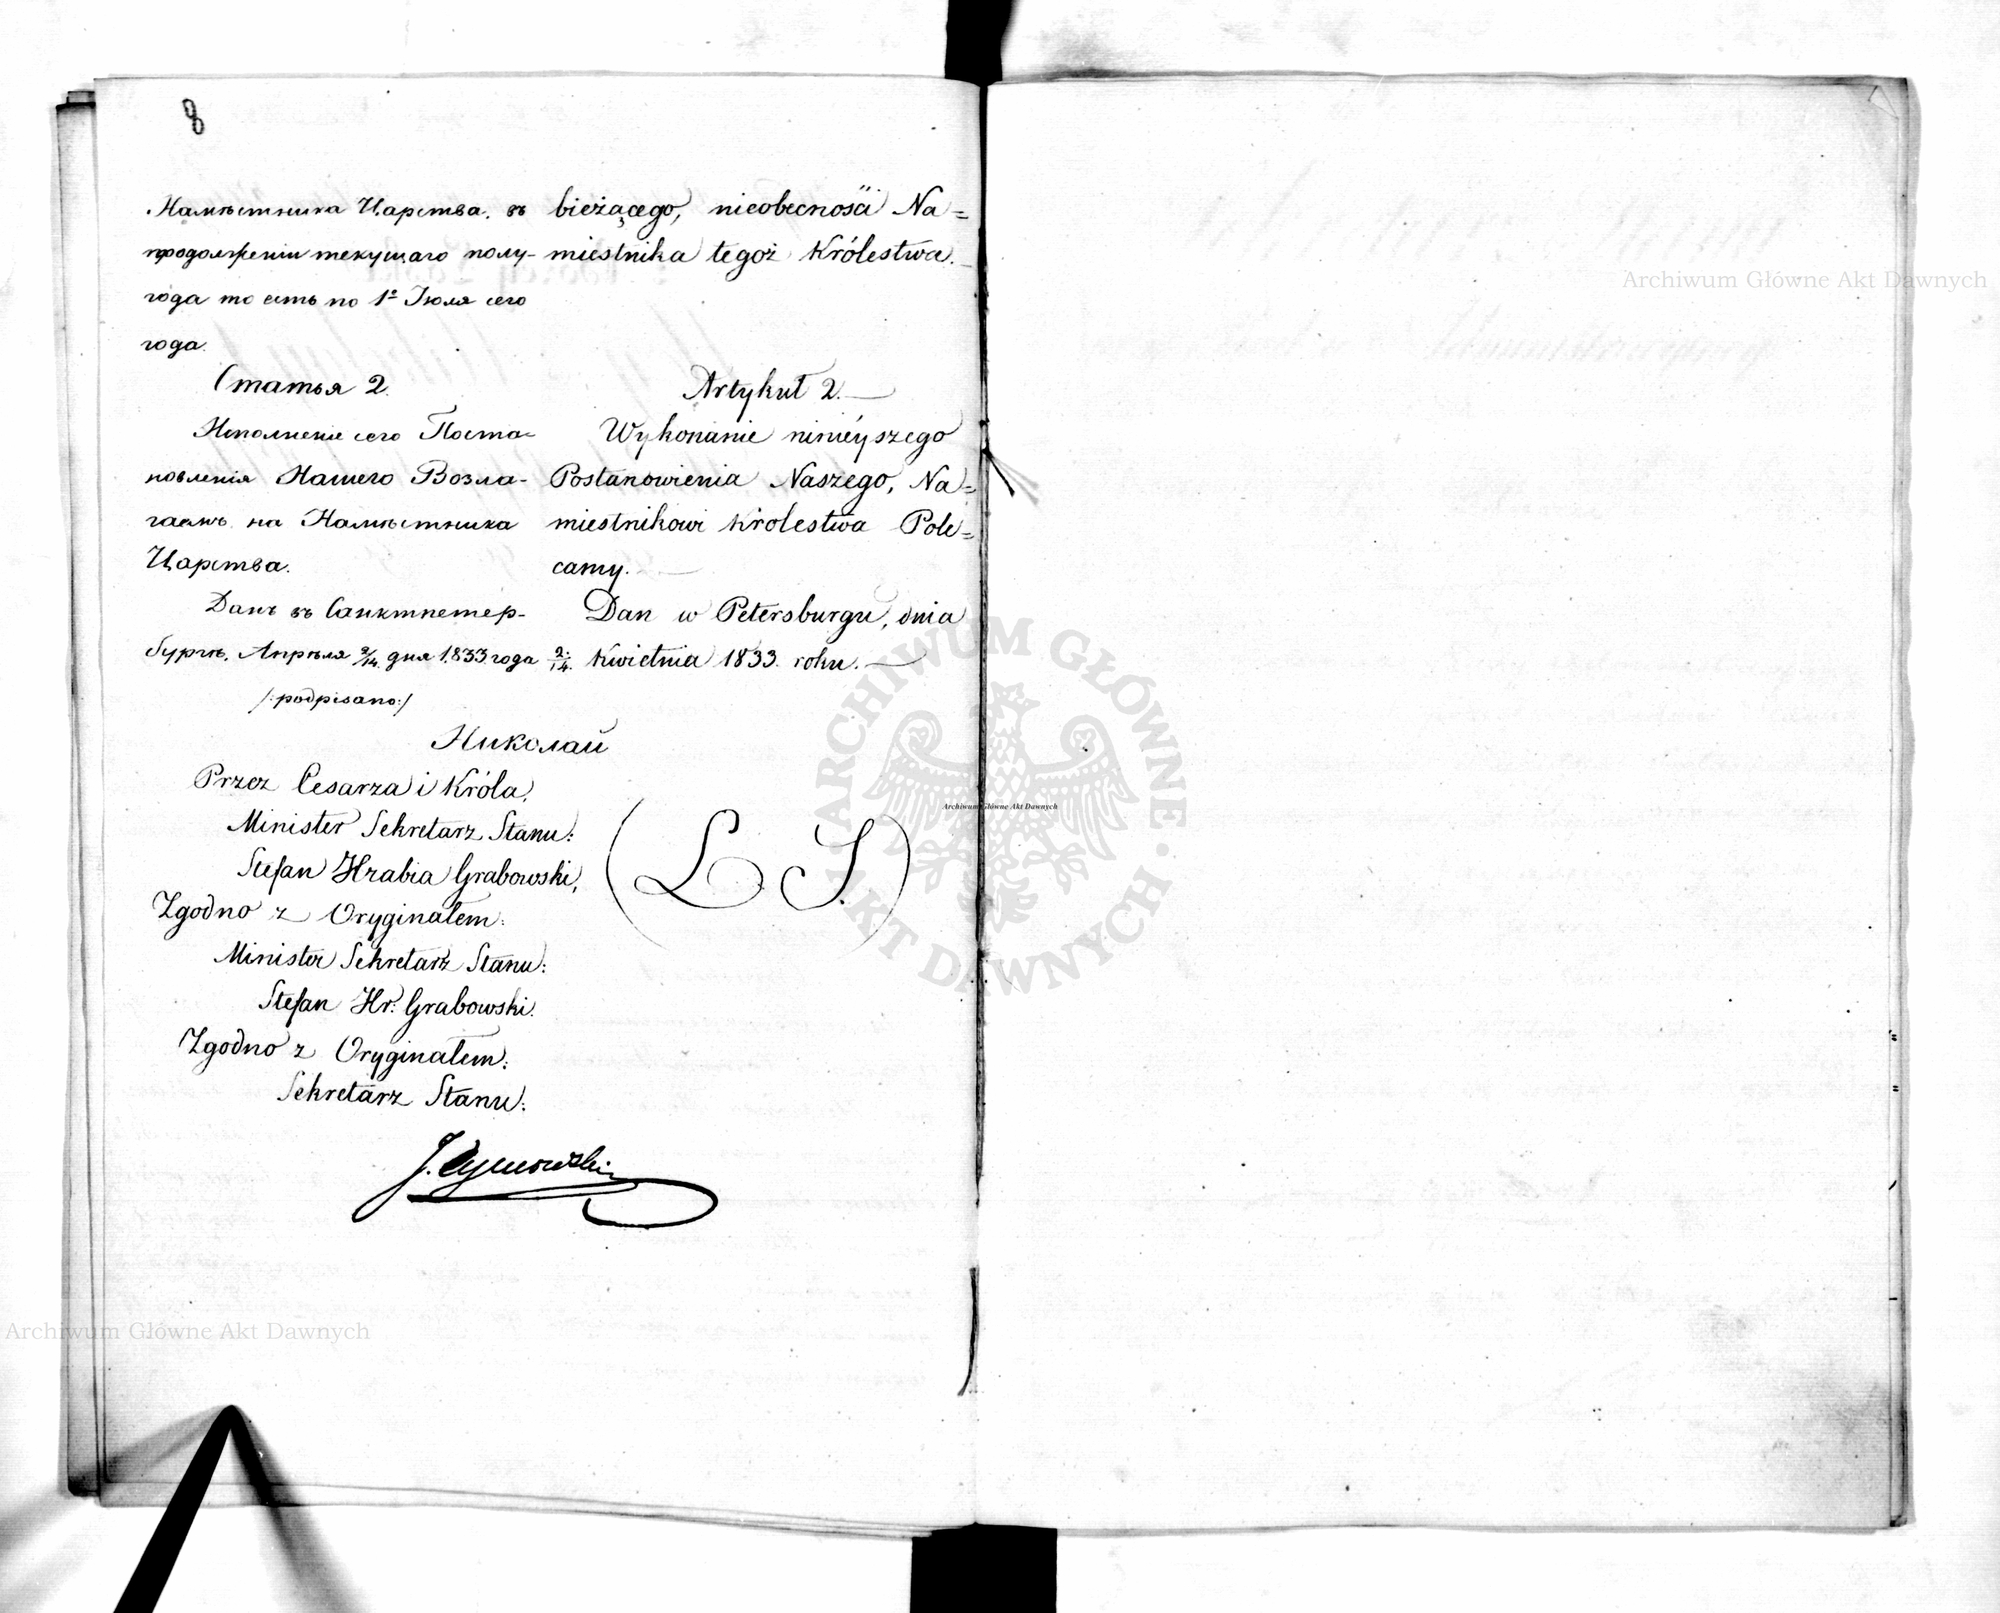 8
Намѣстника Царства. въ
продолженіи текущаго полу-
года то есть по 1е Іюля сего
года.
Статья 2.
Исполненіе сего Поста-
новленія Нашего Возла-
гаемъ на Намѣстника
Царства.
Данъ въ Санктпетер-
бургѣ, Апрѣля 2/14. дня 1833 года
bieżącego, nieobecności Na=
miestnika tegoż Królestwa.
Artykuł 2.
Wykonanie ninieyszego
Postanowienia Naszego, Na=
miestnikowi Królestwa Pole=
camy.
Dan w Petersburgu, dnia
2/14. Kwietnia 1833. roku.
/:podpisano:/
Николай
Przez Cesarza i Króla,
Minister Sekretarz Stanu:
Stefan Hrabia Grabowski,
(L. S.)
Zgodno z Oryginałem:
Minister Sekretarz Stanu:
Stefan Hr: Grabowski.
Zgodno z Oryginałem:
Sekretarz Stanu:
J. Tymowski
Archiwum Główne Akt Dawnych
Archiwum Główne Akt Dawnych
Archiwum Główne Akt Dawnych
ARCHIWUM GŁÓWNE AKT DAWNYCH